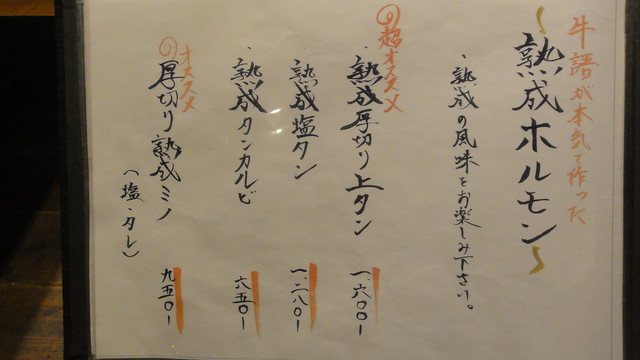 牛語が本気で作った
~熟成ホルモン~
・熟成の風味をお楽しみ下さい。
◎超オススメ
・熟成厚切り上タン 一、六〇〇ー
熟成塩タン 一、二八〇ー
・熟成タンカルビ 六五〇ー
◎オススメ
厚切り熟成ミノ 九五〇ー
(塩・タレ)